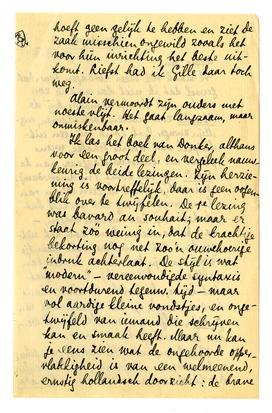 hoeft geen gelijk te hebben en ziet de
zaak misschien ongewild zooals het
voor hùn inrichting het beste uit-
komt. Liefst had ik Gille daar toch
weg.
Alain vermoordt zijn ouders met
noeste vlijt. Het gaat langzaam, maar
onmiskenbaar.
Ik las het boek van Donker, althans
voor een groot deel, en vergeleek nauw-
keurig de beide lezingen. Zijn herzie-
ning is voortreffelijk, daar is geen oogen-
blik over te twijfelen. De 1e lezing
was bavard au souhait; maar er
staat zoo weinig in, dat de krachtige
bekorting nog net zoo'n onbehoorlijke
indruk achterlaat. De stijl is wat
"modern" – vereenvoudigde syntaxis
en voortdurend tegenw. tijd – maar
vol aardige kleine vondstjes, en onge-
twijfeld van iemand die schrijven
kan en smaak heeft. Maar nu kan
je eens zien wat de ongehoorde opper-
vlakkigheid is van een welmeenend,
ernstig hollandsch doorzicht: de brave